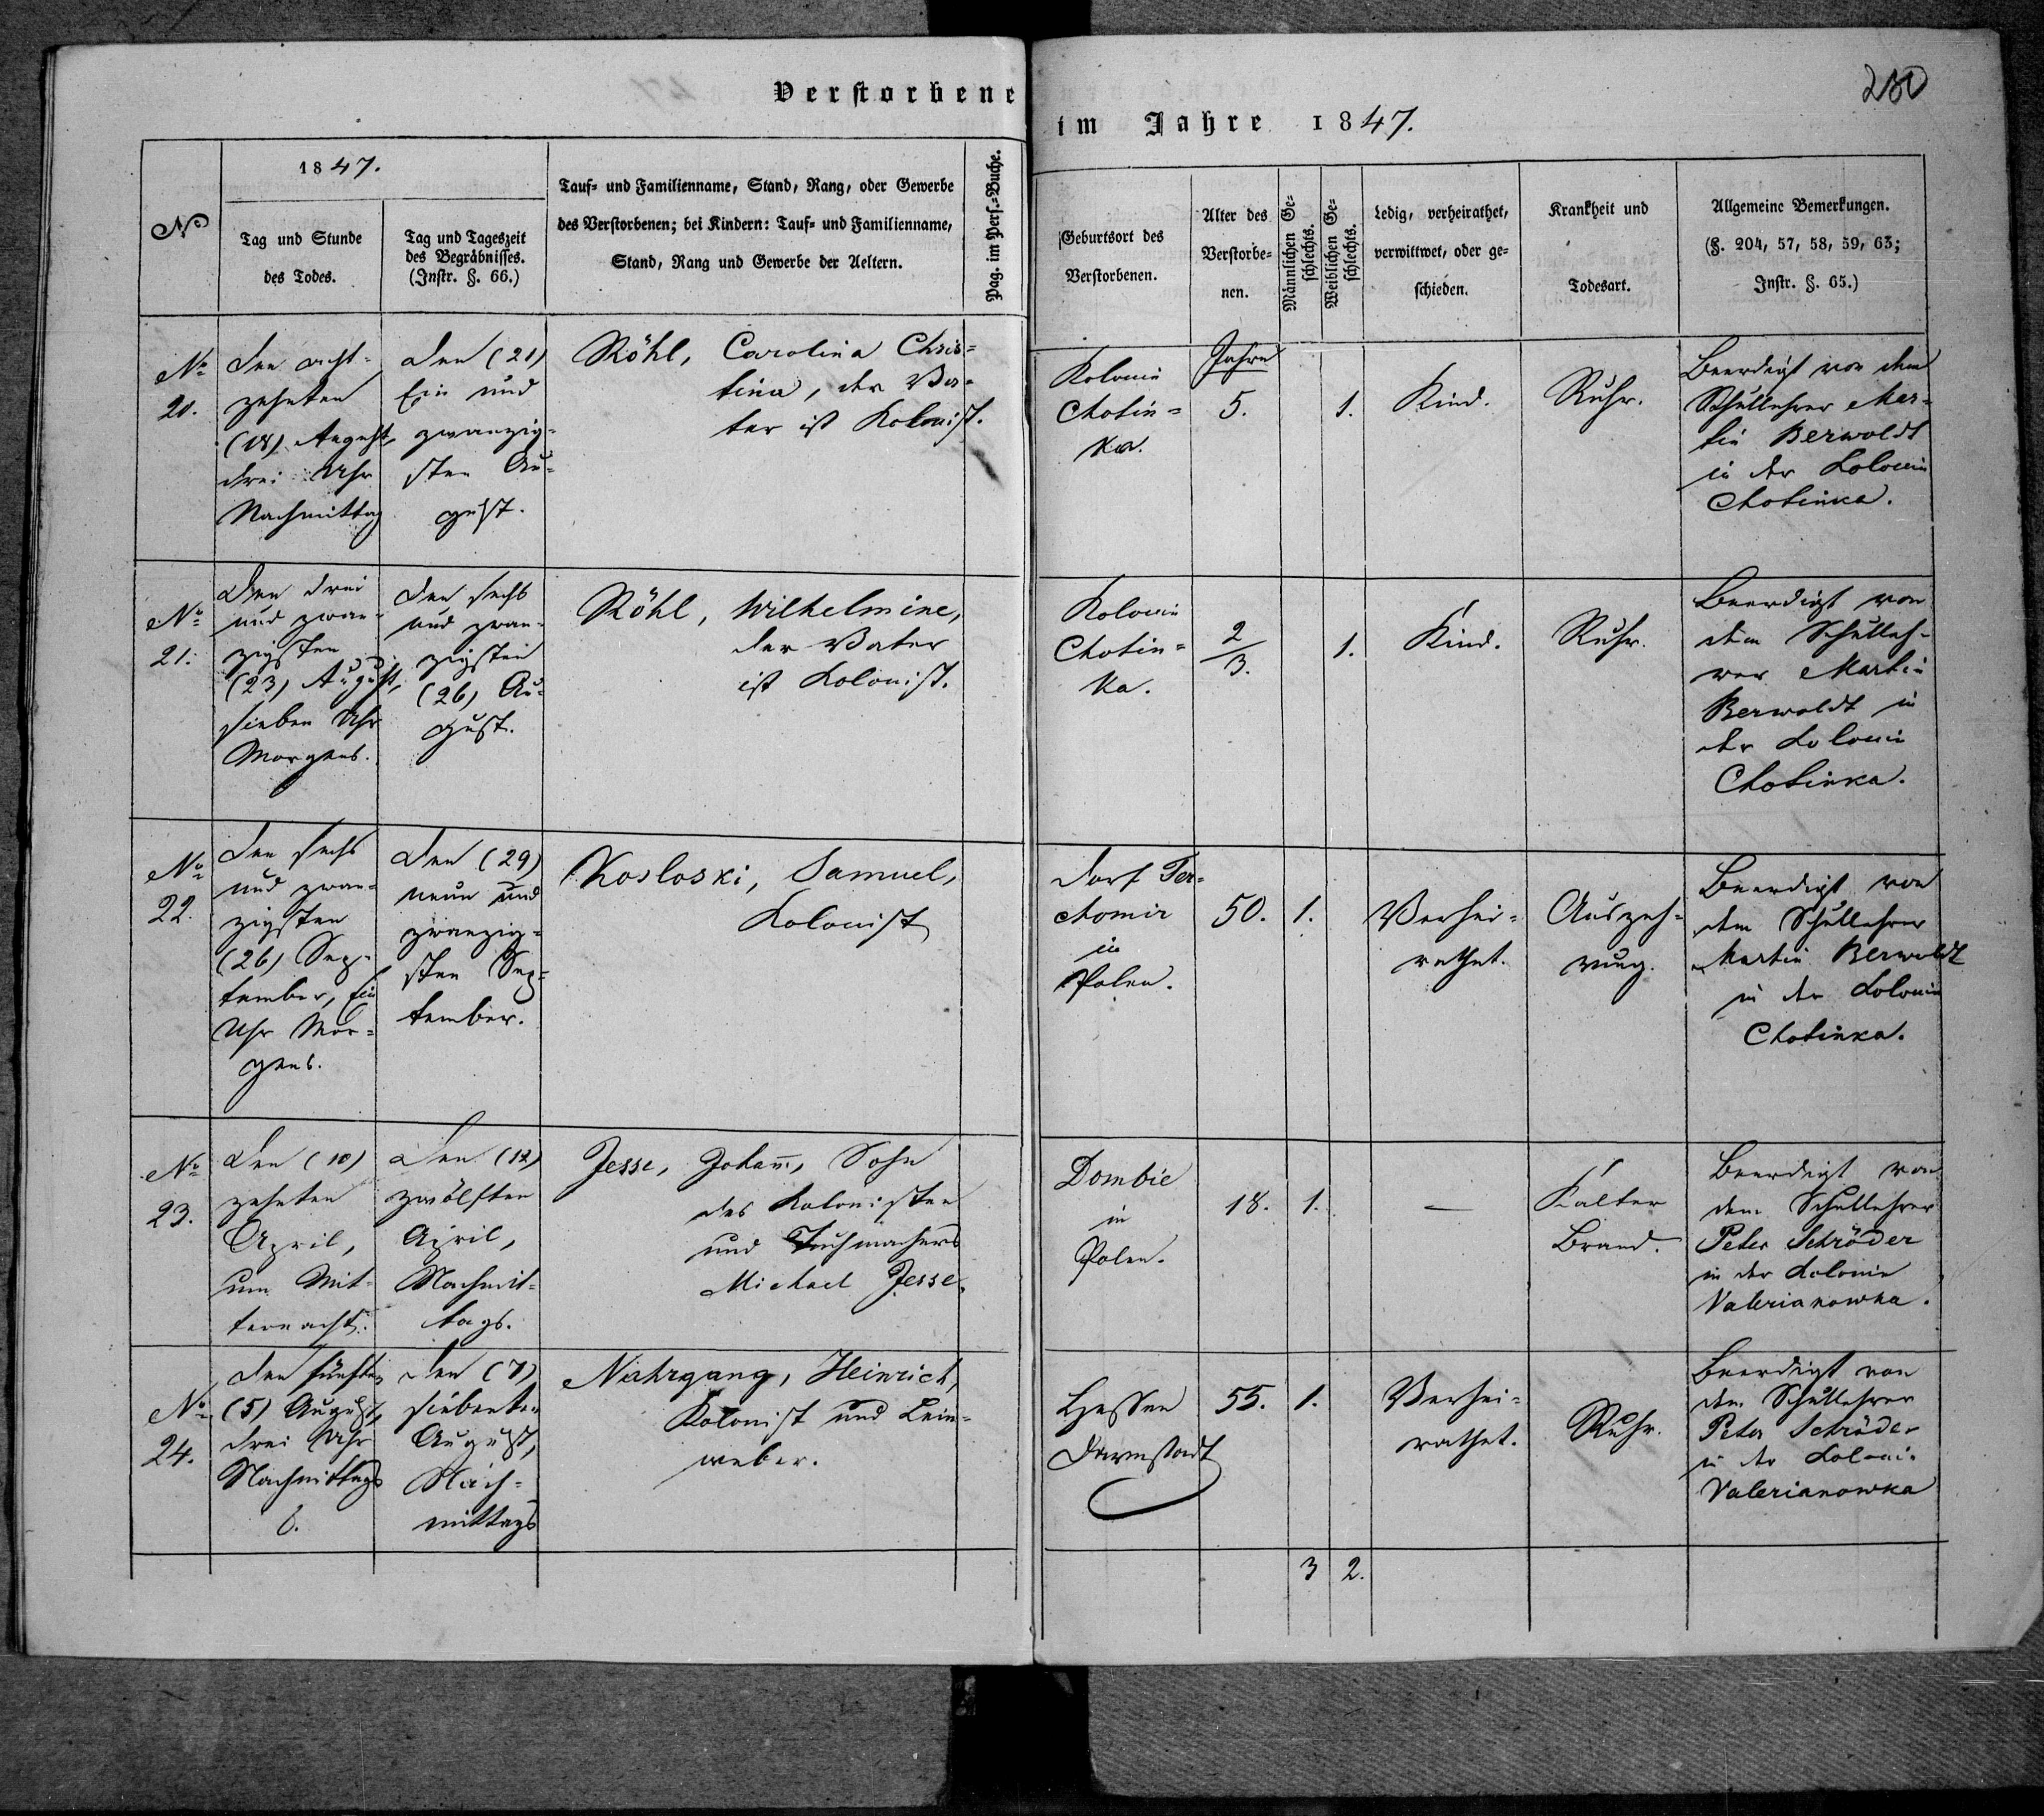 Verstorbene
im Jahre 1847.
280
1847.
No
Tag und Stunde
des Todes.
Tag und Tageszeit
des Begräbnisses.
(Instr. §. 66.)
Tauf= und Familienname, Stand, Rang, oder Gewerbe
des Verstorbenen; bei Kindern: Tauf= und Familienname,
Stand, Rang und Gewerbe der Aeltern.
Pag. im Pers.=Buche.
Geburtsort des
Verstorbenen.
Alter des
Verstorbe=
nen.
Männlichen Ge=
schlechts.
Weiblichen Ge=
schlechts.
Ledig, verheirathet,
verwittwet, oder ge=
schieden.
Krankheit und
Todesart.
Allgemeine Bemerkungen.
(§. 204, 57, 58, 59, 63;
Instr. §. 65.)
No
20.
Den acht=
zehnten
(18) August,
drei Uhr
Nachmittag
Den (21)
Ein und
zwanzig=
sten Au=
gust.
Röhl, Carolina Chris=
tina, der Va=
ter ist Kolonist.
Kolonie
Chotin=
ka.
Jahre
5.
1.
Kind.
Ruhr.
Beerdigt von dem
Schullehrer Mar=
tin Berwoldt
in der Kolonie
Chotinka.
No
21.
Den drei
und zwan=
zigsten
(23) August,
sieben Uhr
Morgens.
Den sechs
und zwan=
zigsten
(26) Au=
gust.
Röhl, Wilhelmine,
der Vater
ist Kolonist.
Kolonie
Chotin=
ka.
2/3.
1.
Kind.
Ruhr.
Beerdigt von
dem Schulleh=
rer Martin
Berwoldt in
der Kolonie
Chotinka.
No
22.
Den sechs
und zwan=
zigsten
(26) Sep=
tember, Ein
Uhr Mor=
gens.
Den (29)
neun und
zwanzig=
sten Sep=
tember.
Kosloski, Samuel,
Kolonist
Dorf Ter=
chomir
in
Polen.
50.
1.
Verhei=
rathet.
Auszeh=
rung.
Beerdigt von
dem Schullehrer
Martin Berwoldt
in der Kolonie
Chotinka.
No
23.
Den (10)
zehnten
April,
um Mit=
ternacht.
Den (12)
zwölften
April,
Nachmit=
tags.
Jesse, Johann, Sohn
des Kolonisten
und Tuchmachers
Michael Jesse.
Dombie
in
Polen.
18.
1.
—
Kalter
Brand.
Beerdigt von
dem Schullehrer
Peter Schröder
in der Kolonie
Valerianowka.
No
24.
Den fünften
(5) August,
drei Uhr
Nachmittags
Den (7)
siebenten
August,
Nach=
mittags
Nahrgang, Heinrich,
Kolonist und Lein=
weber.
Hessen
Darmstadt
55.
1.
Verhei=
rathet.
Ruhr.
Beerdigt von
dem Schullehrer
Peter Schröder
in der Kolonie
Valerianowka
3
2.